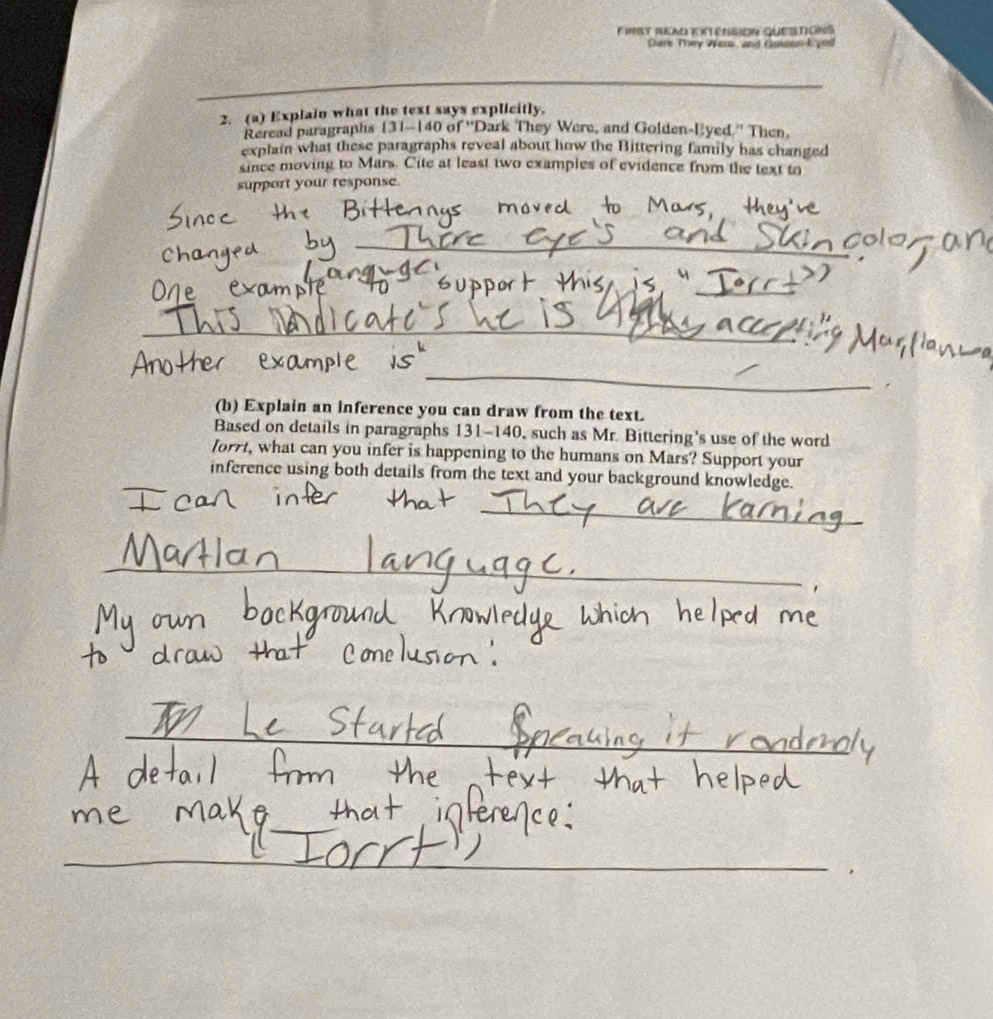 FIRST READ EXTENSION QUESTIONS
Dark They Were, and Golden-Eyed
2. (a) Explain what the text says explicitly.
Reread paragraphs 131–140 of "Dark They Were, and Golden-Eyed." Then,
explain what these paragraphs reveal about how the Bittering family has changed
since moving to Mars. Cite at least two examples of evidence from the text to
support your response.
Since the Bitterings moved to Mars, they've
changed by There eye's and Skin color, and
Language.
One example to support this is "Iorrt"
This indicate's he is accepting Martian
Another example is "
(b) Explain an inference you can draw from the text.
Based on details in paragraphs 131–140, such as Mr. Bittering's use of the word
Iorrt, what can you infer is happening to the humans on Mars? Support your
inference using both details from the text and your background knowledge.
I can infer that They are Larning
Martian language.
My own background knowledge which helped me
to draw that conclusion:
he Started Speaking it randomly
A detail from the text that helped
me make that inference:
"Iorrt"